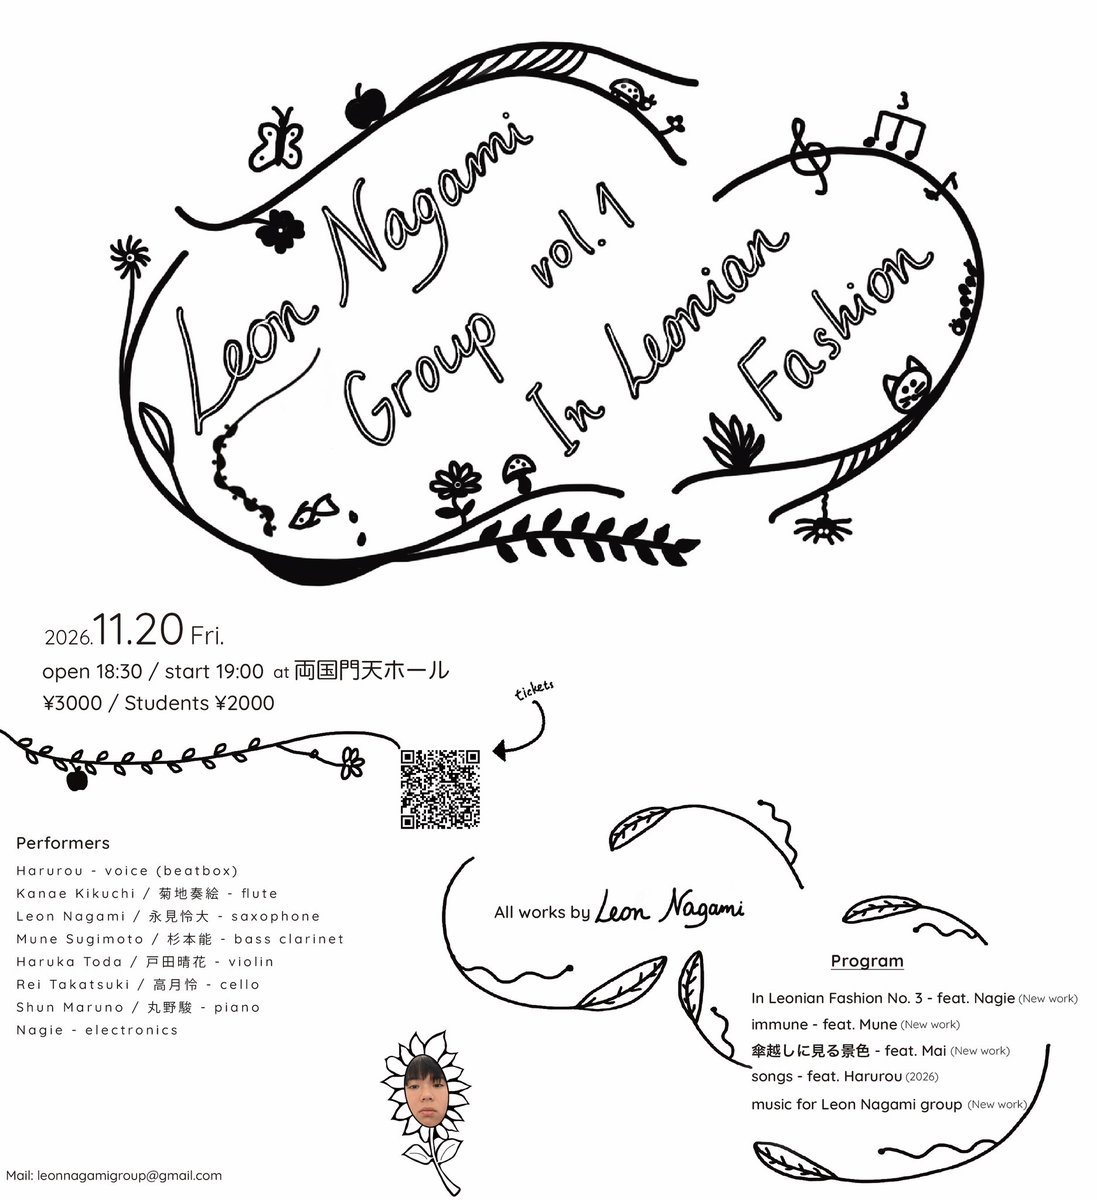 Leon Nagami
Group vol.1
In Leonian
Fashion
3
2026.11.20 Fri.
open 18:30 / start 19:00 at 両国門天ホール
¥3000 / Students ¥2000
tickets
Performers
Harurou - voice (beatbox)
Kanae Kikuchi / 菊地奏絵 - flute
Leon Nagami / 永見怜大 - saxophone
Mune Sugimoto / 杉本能 - bass clarinet
Haruka Toda / 戸田晴花 - violin
Rei Takatsuki / 高月怜 - cello
Shun Maruno / 丸野駿 - piano
Nagie - electronics
All works by Leon Nagami
Program
In Leonian Fashion No. 3 - feat. Nagie (New work)
immune - feat. Mune (New work)
傘越しに見る景色 - feat. Mai (New work)
songs - feat. Harurou (2026)
music for Leon Nagami group (New work)
Mail: leonnagamigroup@gmail.com